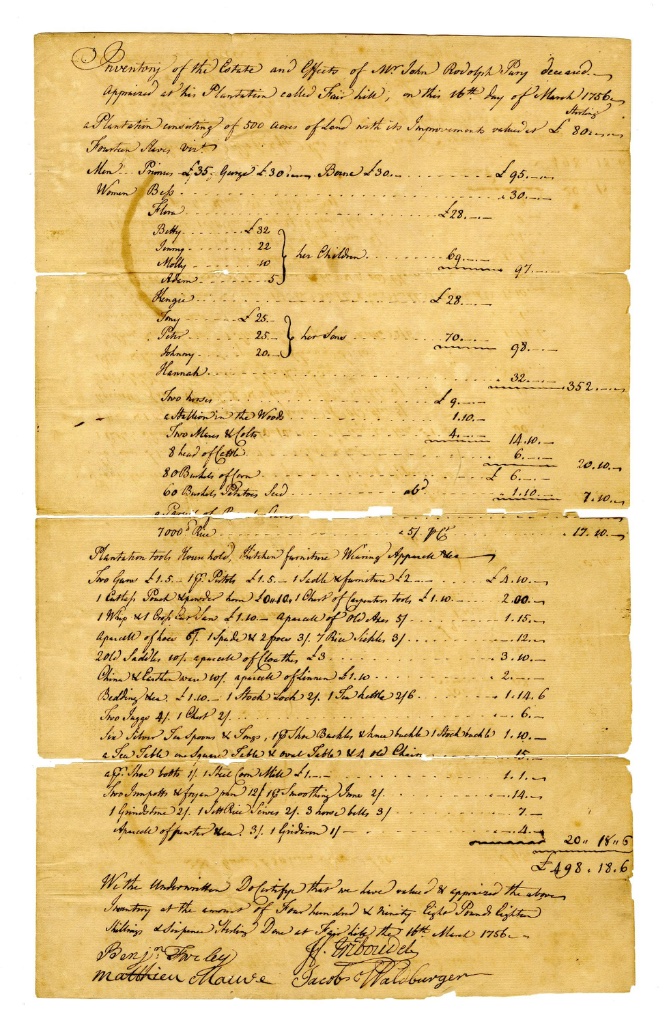 Inventory of the Estate and Effects of Mr. John Rodolph Pury deceased
Appraized at his Plantation called Fair hill, on this 16th day of March 1756
Sterling
a Plantation consisting of 500 acres of Land with its Improvements valued at £ 80
Fourteen Slaves vizt
Men Primus £35, George £30 Bone £30 £ 95.
Women Bess 30.
Flora £28.
Betty £32
Jenny 22
Molly 10 her Children 69 97.
Adam 5
Kengie £28
Tony £25
Peter 25 her Sons 70. 98.
Johnny 20
Hannah 32. 352.
Two horses £ 9.
a Stallion in the Woods 1.10.
Two Mares & Colts 4. 14.10.
8 head of Cattle 6. 20.10.
80 Bushels of Corn £ 6.
60 Bushels Potatoes Seed a 6d 1.10 7.10.
a Parcel of
7000 Rice a 5/ 17.10.
Plantation tools Household, Kitchen furniture Wearing Apparell &ca
Two Guns £1.5. 1 pr Pistols £1.5 1 Sadle & furniture £2 £ 4.10.
1 Pouch & powder horn £0.10. 1 Chest of Carpenters tools £1.10 2.00.
1 Whip & 1 Cross Cut Saw £1.10 aparcell of Old Axes 5/ 1.15.
aparcell of hoes 6/ 1 Spade & 2 froes 3/. 7 Rice Sickles 3/ .12.
2 Old Saddles 10/. aparcell of Cloaths £3 3.10.
China & Earthen ware 10/ aparcell of Linnen £1.10 2.
Bedding &ca £1.10 1 Stock Lock 2/. 1 Tea kettle 2/6 1.14.6
Two Juggs 4/. 1 Chest 2/ 6.
Six Silver Tea Spoons & Tongs, 1 pr Shoe Buckles & knee buckle 1 Stock buckle 1.10.
a Tea Table one Square Table & oval Table & 4 old Chairs 15.
a pr Shoe 1/. 1 Steel Corn Mill £1. 1.1.
Two Ironpotts & fryen pan 12/ 1 pr Smoothing Irons 2/ .14.
1 Grindstone 2/. 1 Sett Rice Sieves 2/. 3 horse bells 3/ 7.
Aparcell of pewter &ca 3/. 1 Gridiron 1/ 4. 20 18 6
£ 498.18.6
We the Underwritten Do Certifye that we have valued & appraized the above
Inventory at the amount of Four hundred & Ninety Eight Pounds Eighteen
Shillings & Sixpence Sterling Done at Fair hill the 16th March 1756
Benjn Farley
Matthieu Mauve Jacob Waldburger